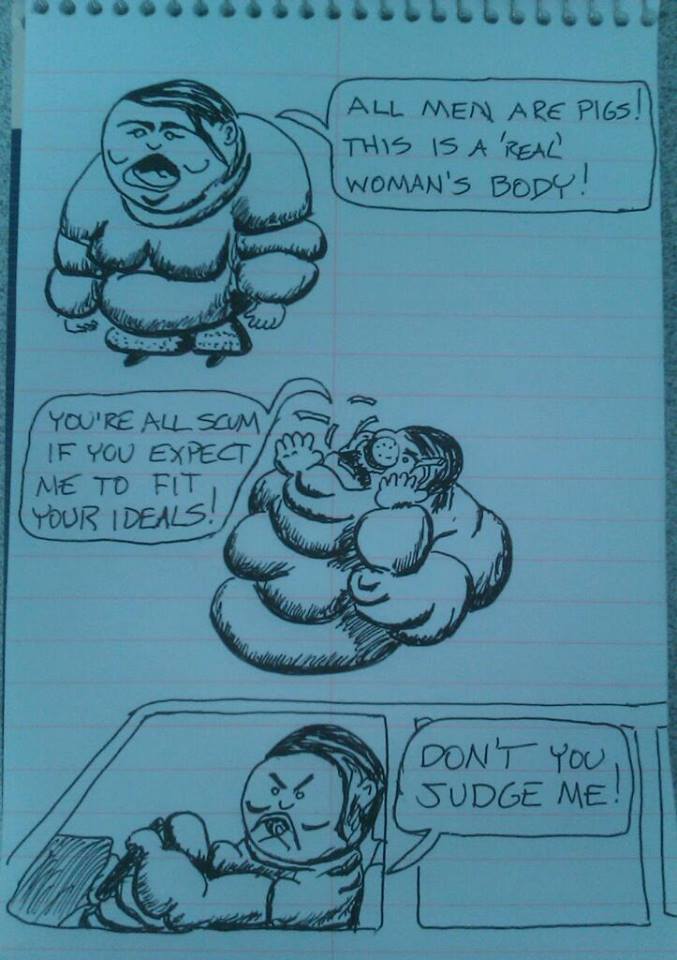 ALL MEN ARE PIGS!
THIS IS A 'REAL'
WOMAN'S BODY!
YOU'RE ALL SCUM
IF YOU EXPECT
ME TO FIT
YOUR IDEALS!
DON'T YOU
JUDGE ME!